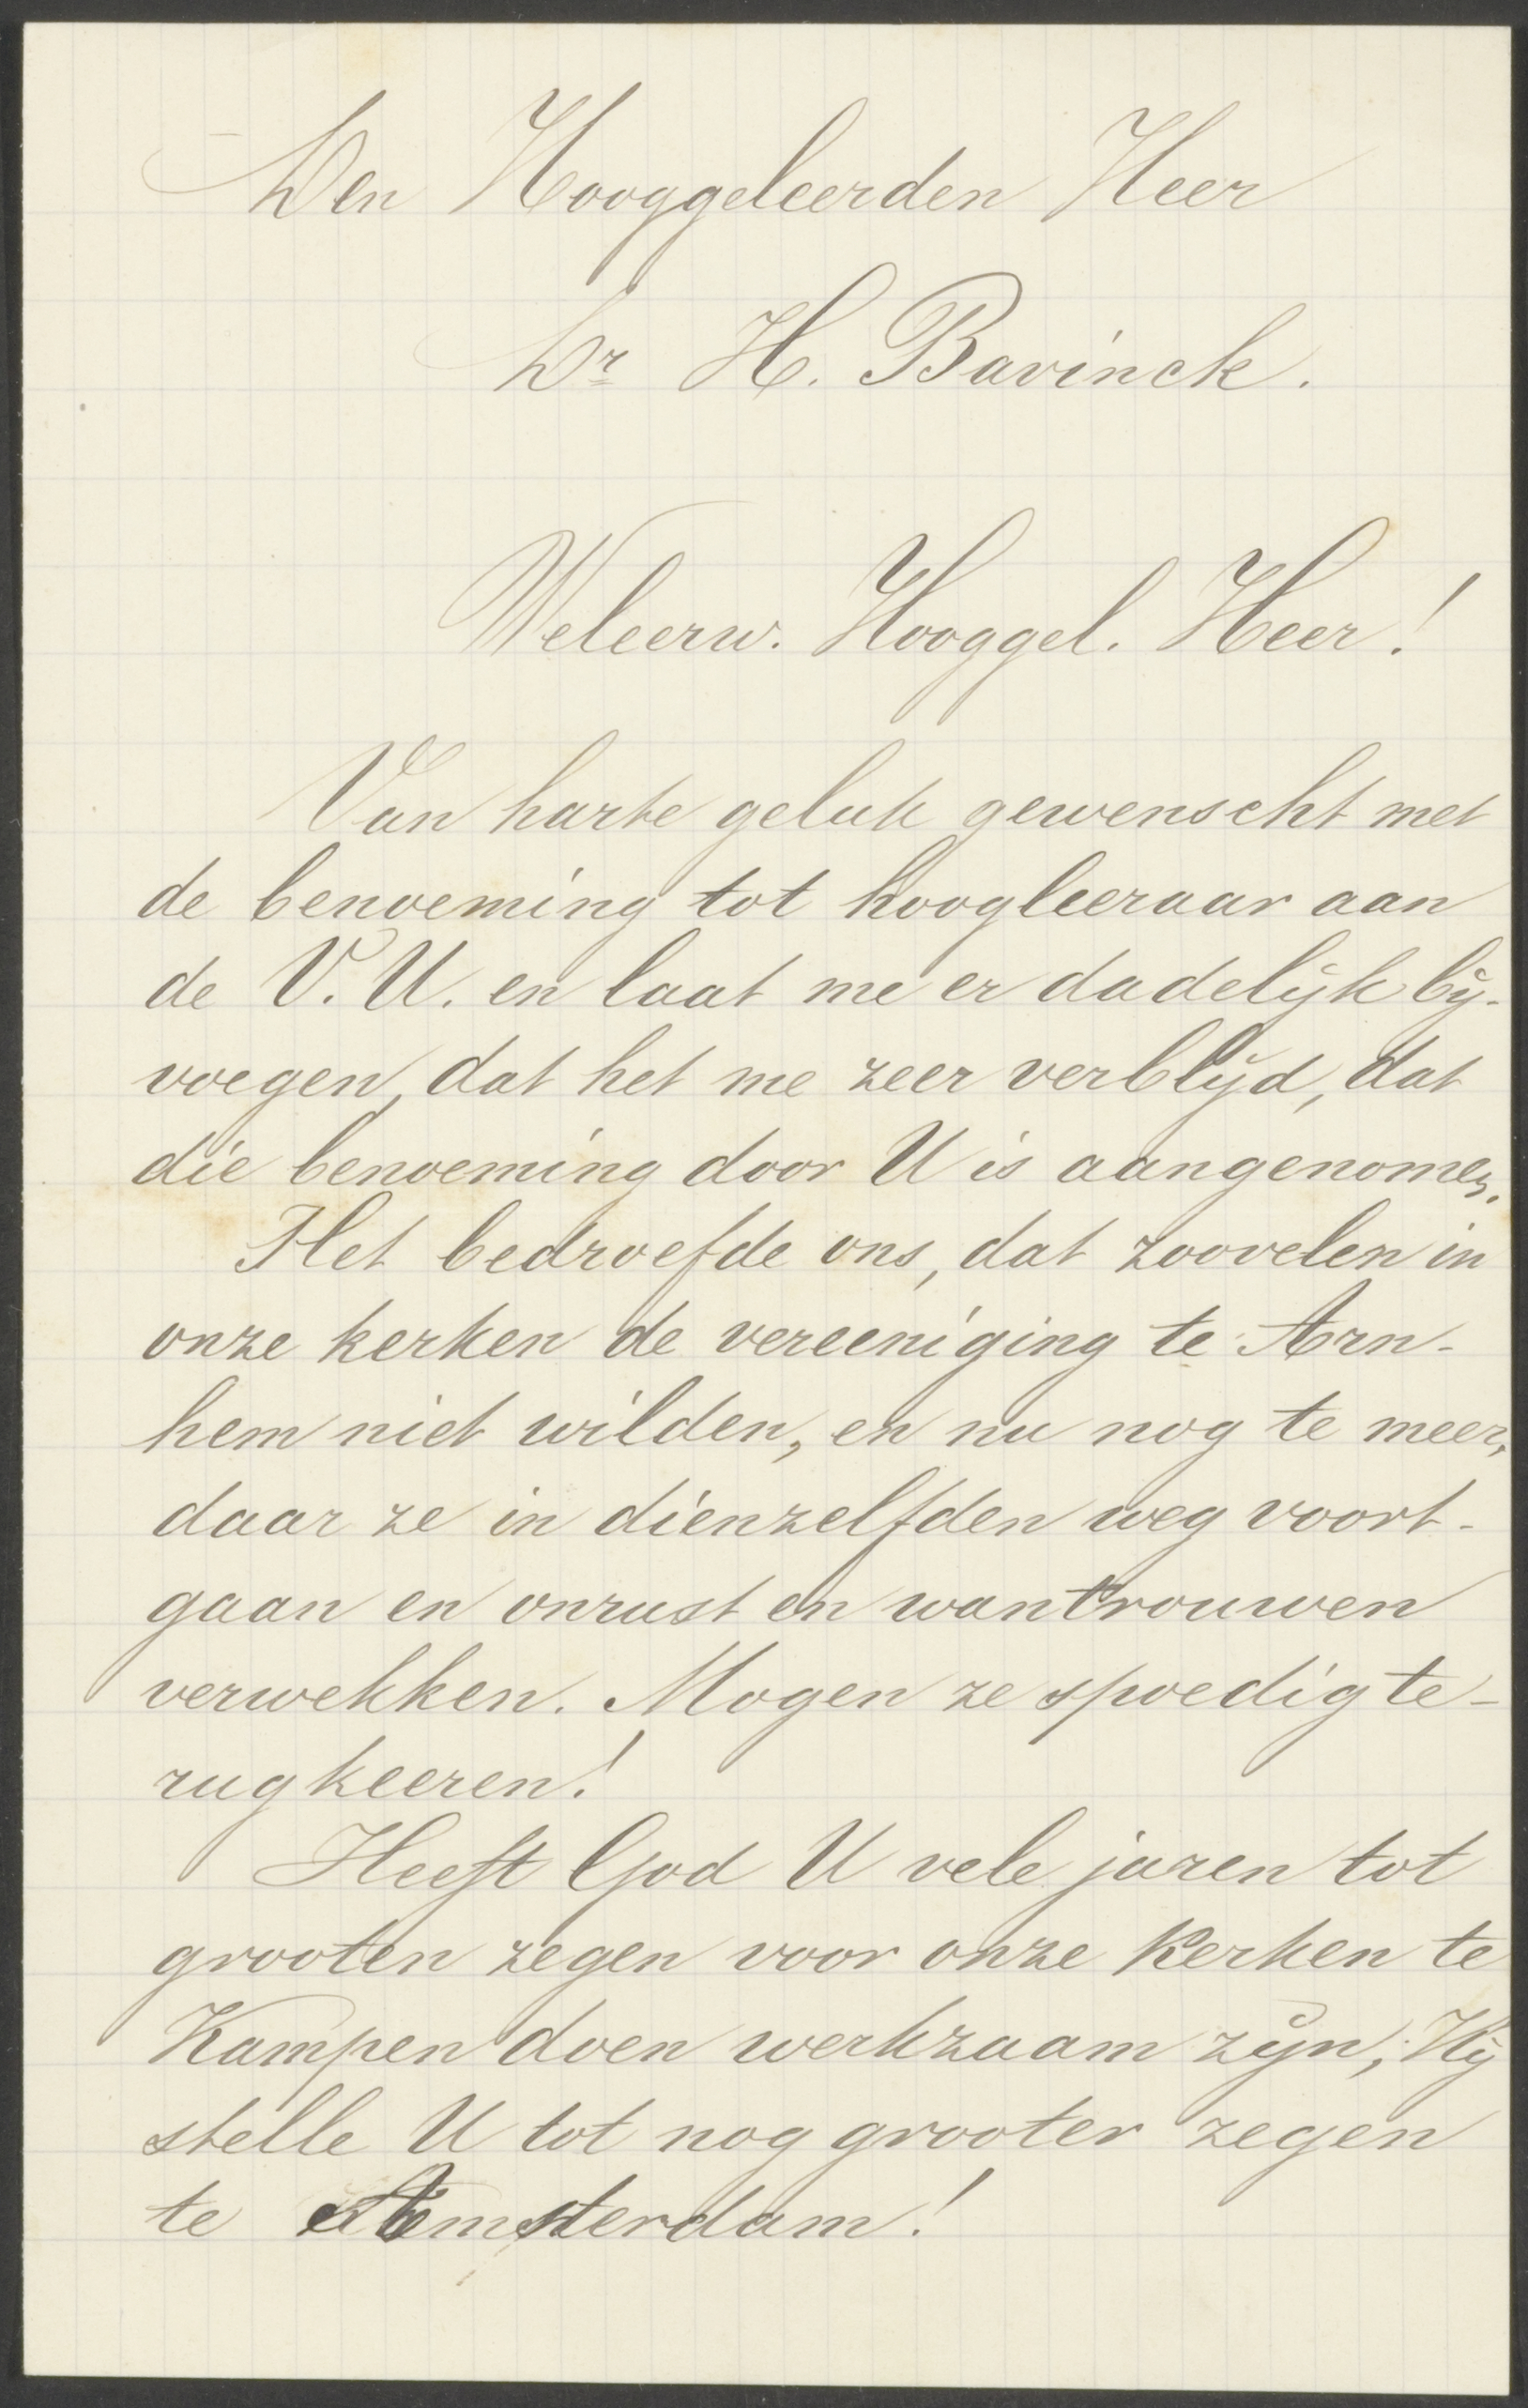 Den Hooggeleerden Heer
Dr H. Bavinck.
Weleerw. Hooggel. Heer!
Van harte geluk gewenscht met
de benoeming tot hoogleeraar aan
de V. U. en laat me er dadelijk bij-
voegen, dat het me zeer verblijd, dat
die benoeming door U is aangenomen.
Het bedroefde ons, dat zoovelen in
onze kerken de vereeniging te Arn-
hem niet wilden, en nu nog te meer,
daar ze in dienzelfden weg voort-
gaan en onrust en wantrouwen
verwekken. Mogen ze spoedig te-
rugkeeren!
Heeft God U vele jaren tot
grooten zegen voor onze Kerken te
Kampen doen werkzaam zijn, Hij
stelle U tot nog grooter zegen
te Amsterdam!